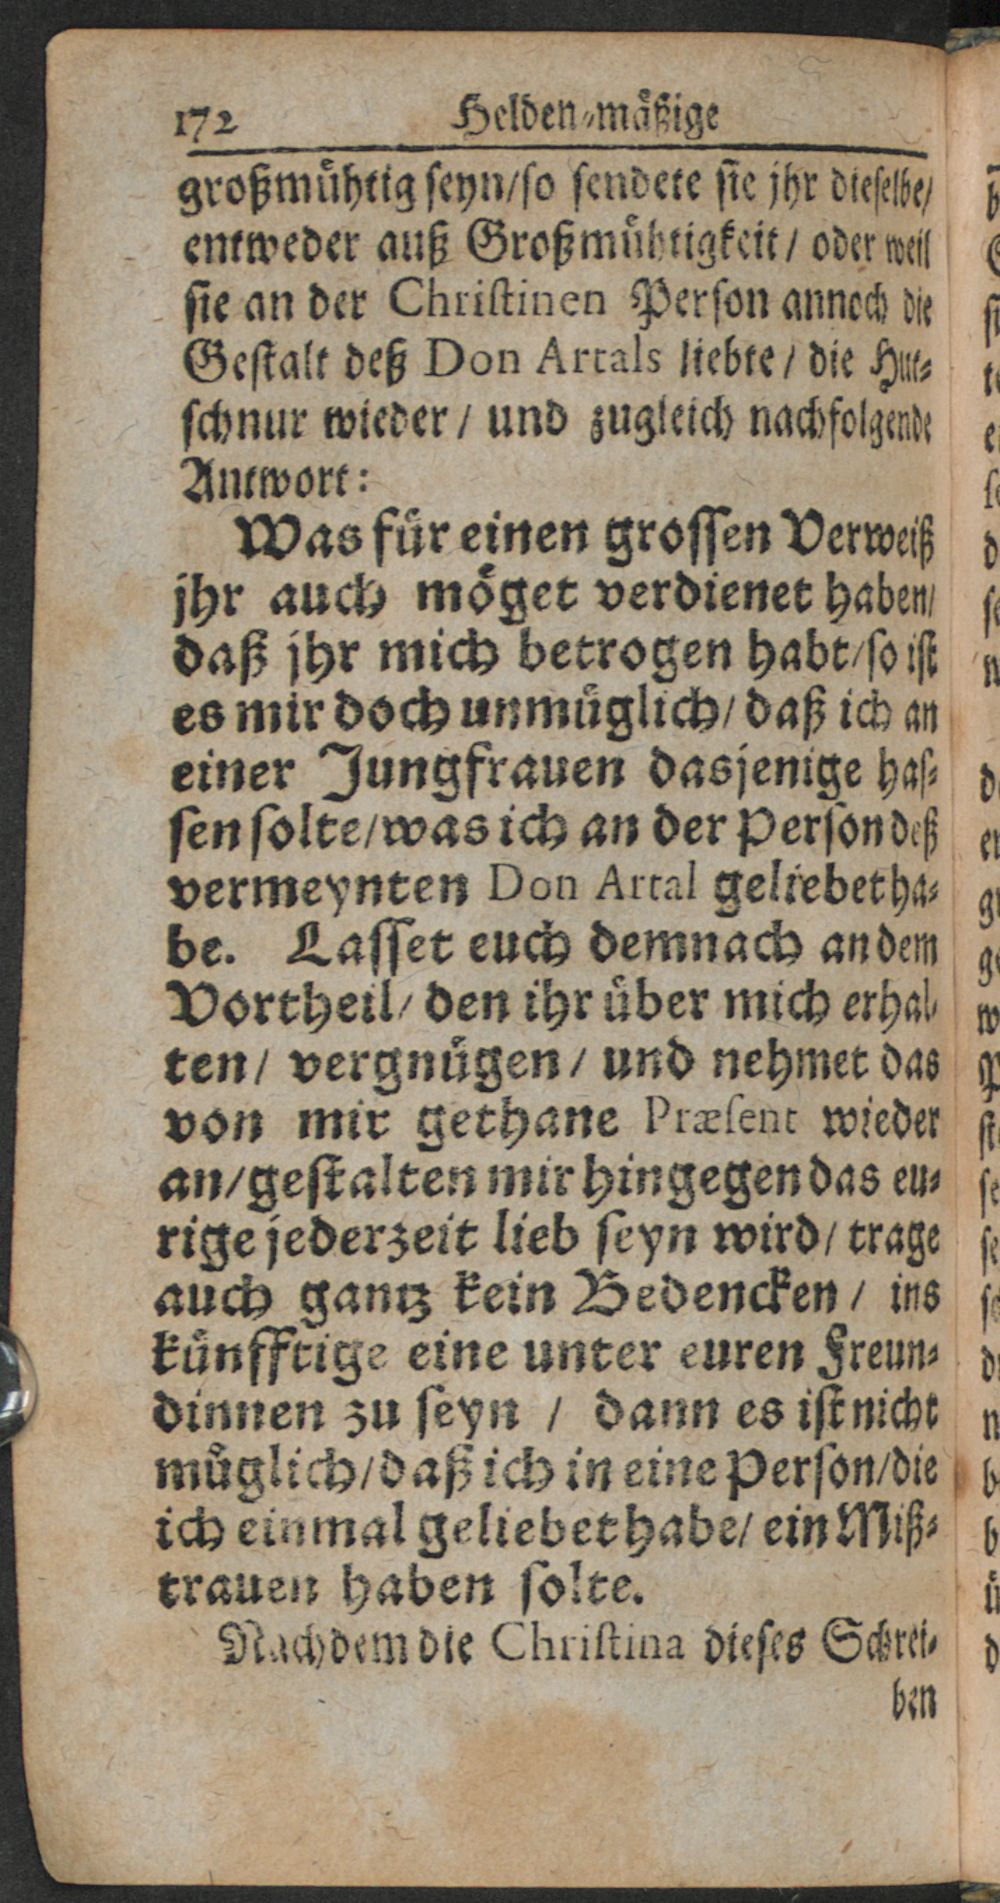 172 Helden-mäßige
großmühtig seyn/so sendete sie jhr dieselbe/
entweder auß Großmühtigkeit/ oder weil
sie an der Christinen Person annoch die
Gestalt deß Don Artals liebte/ die Hut-
schnur wieder/ und zugleich nachfolgende
Antwort:
Was für einen grossen Verweiß
jhr auch möget verdienet haben/
daß jhr mich betrogen habt/so ist
es mir doch unmüglich/ daß ich an
einer Jungfrauen dasjenige has-
sen solte/was ich an der Person deß
vermeynten Don Artal geliebet ha-
be. Lasset euch demnach an dem
Vortheil/ den ihr über mich erhal-
ten/ vergnügen/ und nehmet das
von mir gethane Præsent wieder
an/gestalten mir hingegen das eu-
rige jederzeit lieb seyn wird/ trage
auch gantz kein Bedencken/ ins
künfftige eine unter euren Freun-
dinnen zu seyn / dann es ist nicht
müglich/daß ich in eine Person/die
ich einmal geliebet habe/ ein Miß-
trauen haben solte.
Nachdem die Christina dieses Schrei-
ben